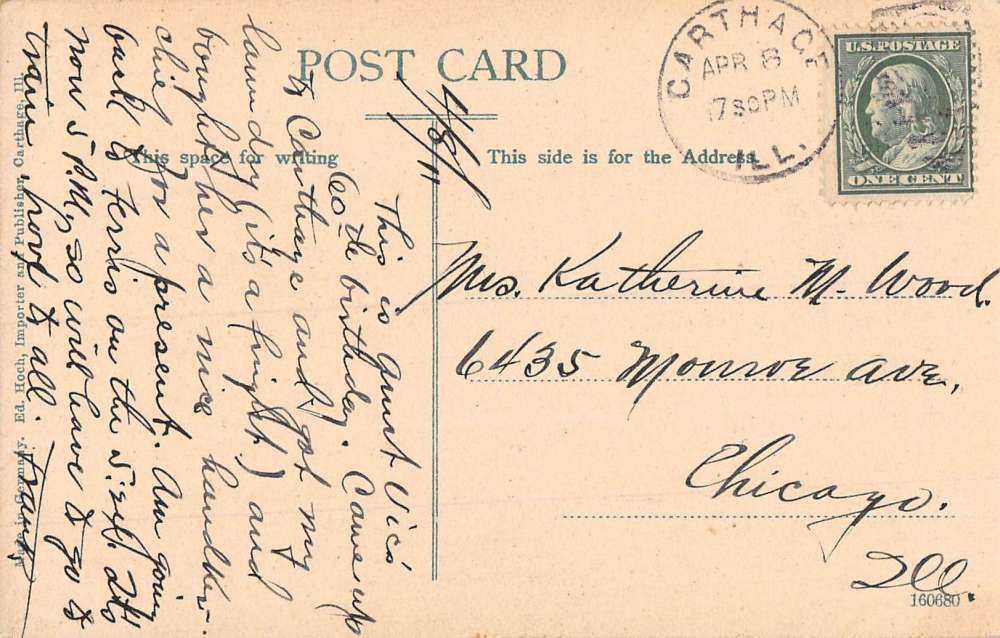 POST CARD
This space for writing
This side is for the Address
CARTHAGE
APR 8
7 30 PM
ILL.
U.S. POSTAGE
ONE CENT
4/8/11
This is Aunt Vic's
60th birthday. Came up
to Carthage and got my
laundry (it's a fright) and
bought her a nice handker-
chief for a present. Am going
back to Ferris on the 5:25. It's
now 5 P.M., so will have to go to
train, love to all.
Mrs. Katherine M. Wood.
6435 Monroe Ave,
Chicago.
Ill.
160680
Made in Germany. Ed. Hoch, Importer and Publisher, Carthage, Ill.